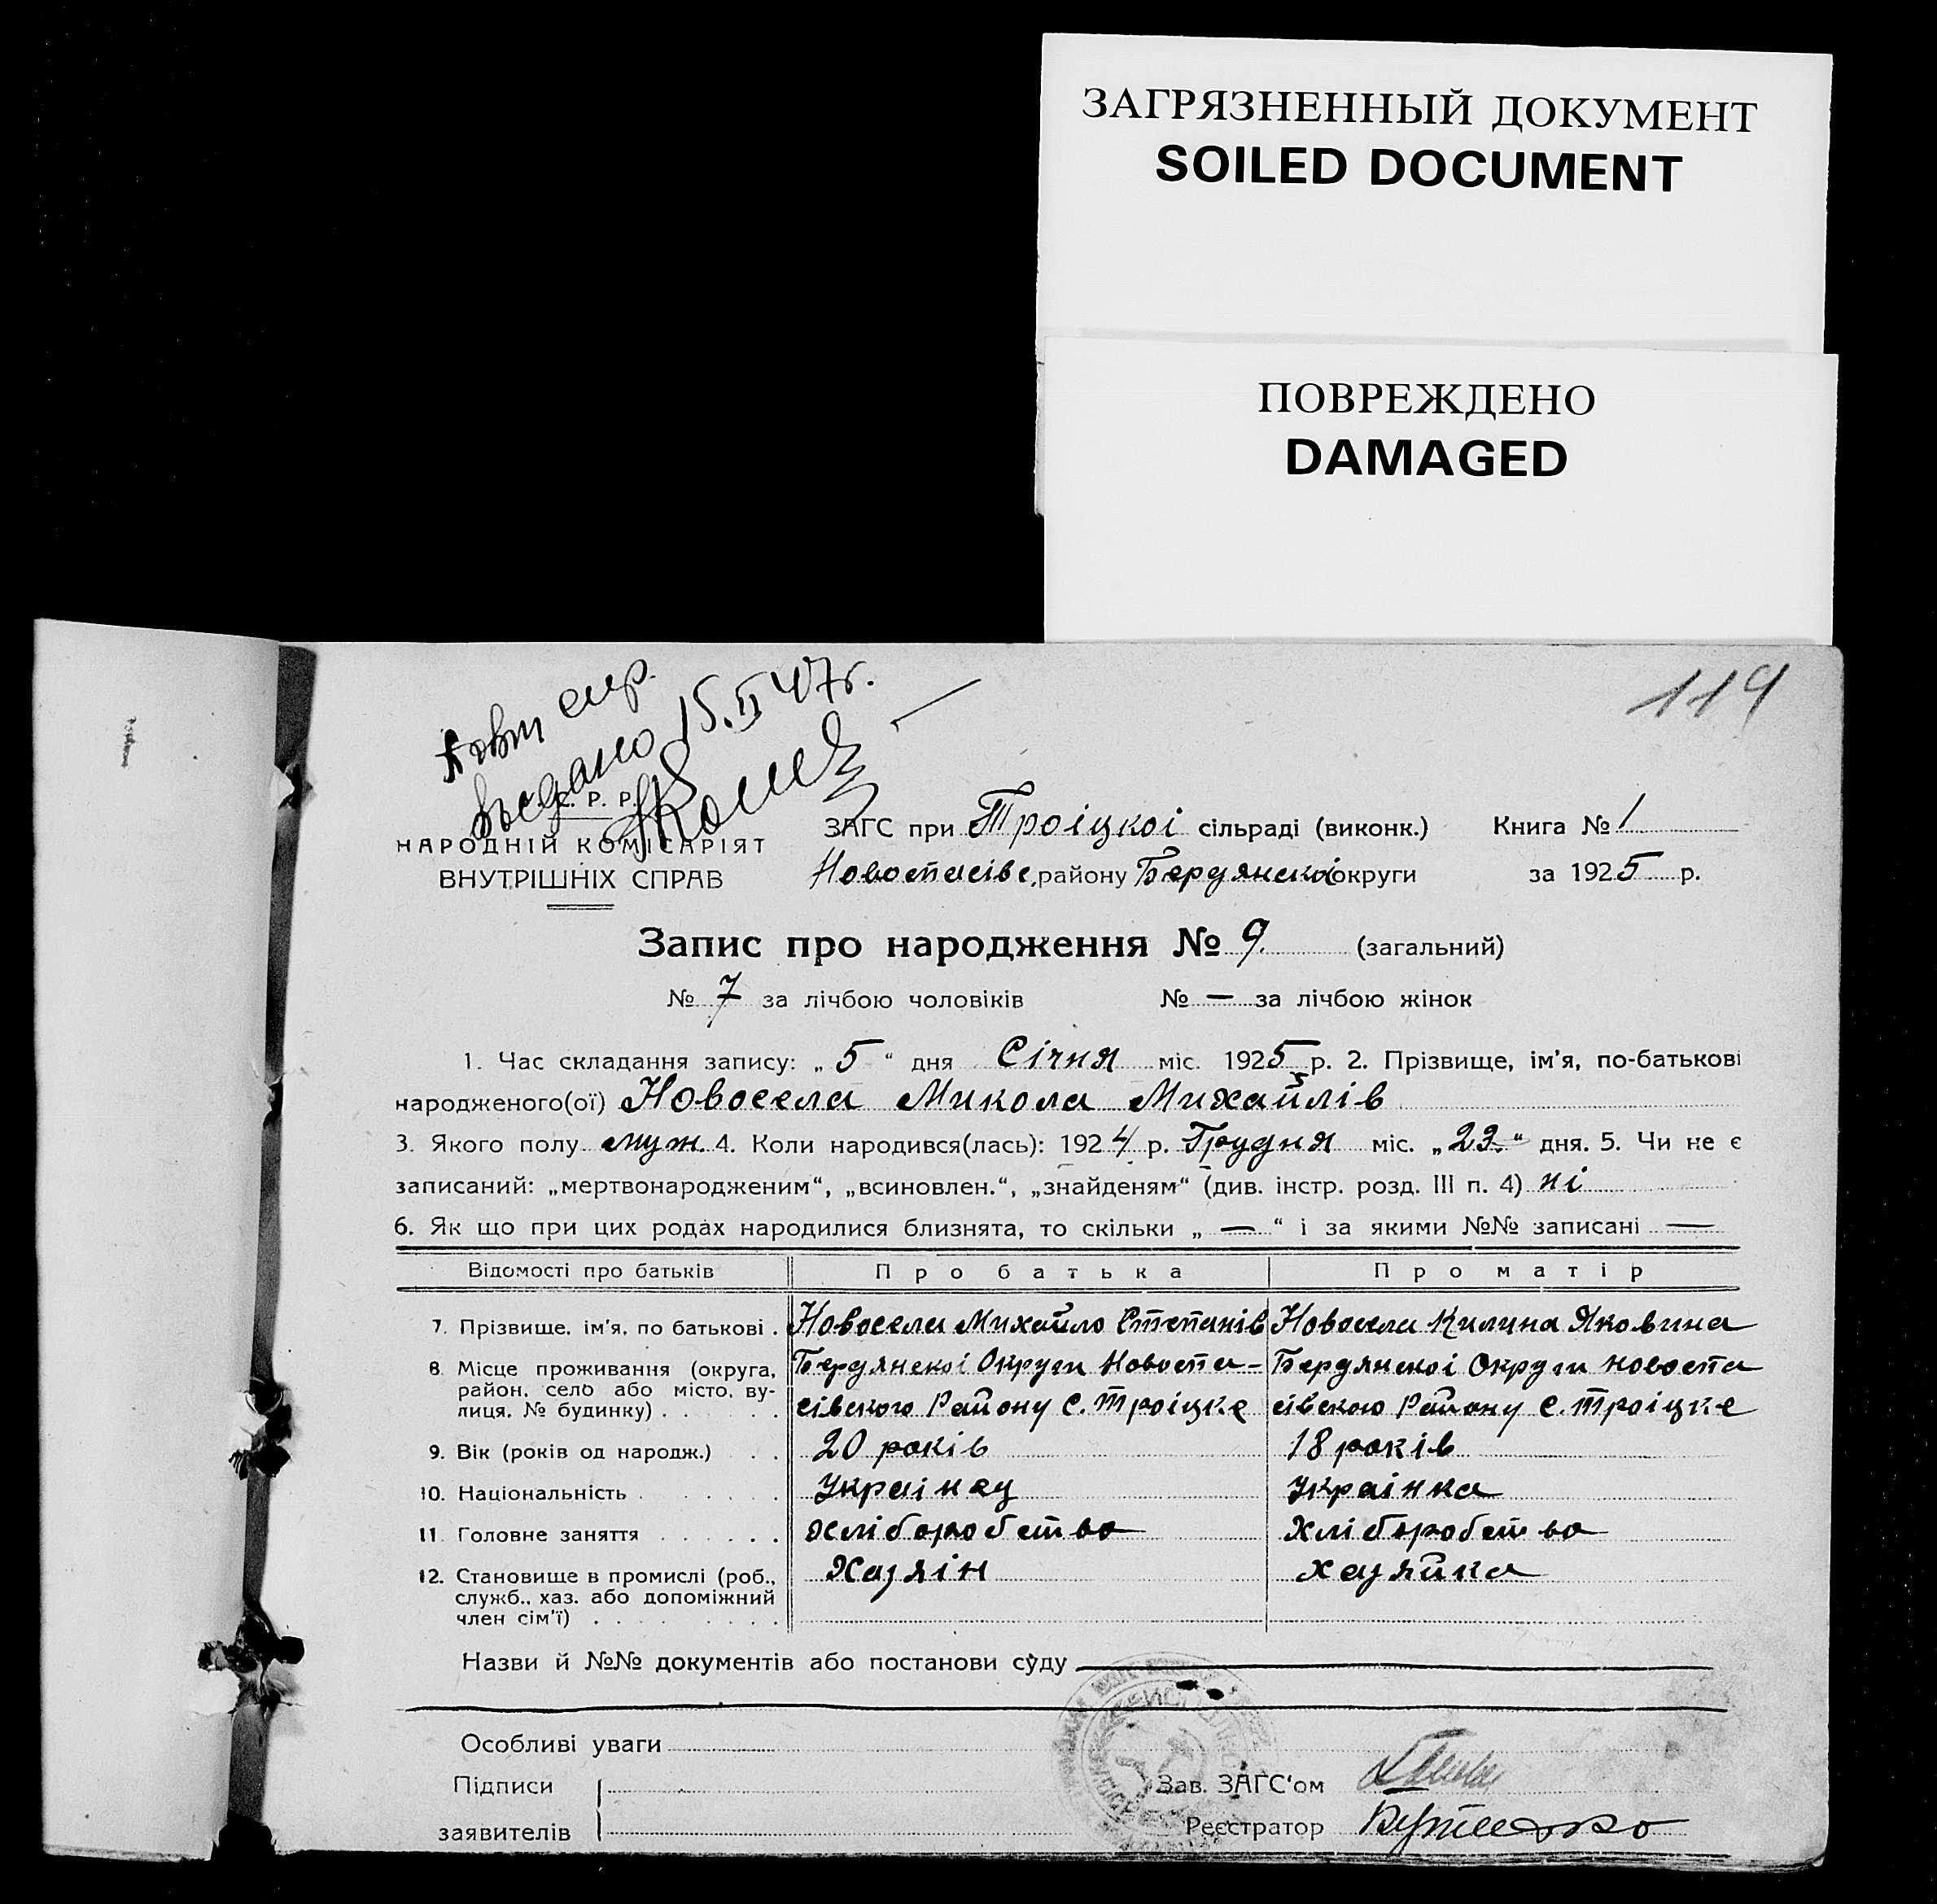 ЗАГРЯЗНЕННЫЙ ДОКУМЕНТ
SOILED DOCUMENT
ПОВРЕЖДЕНО
DAMAGED
119
выдано 15.II 47г.
С. Р. Р.
НАРОДНІЙ КОМІСАРІЯТ
ВНУТРІШНІХ СПРАВ
ЗАГС при Троіцкоі сільраді (виконк.) Книга № 1
Новоспасівс. району Бердянскоі округи за 1925 р.
Запис про народження № 9. (загальний)
№ 7 за лічбою чоловіків № — за лічбою жінок
1. Час складання запису: „ 5 “ дня Січня міс. 1925 р. 2. Прізвище, ім'я, по-батькові
народженого(ої) Новосела Микола Михайлів
3. Якого полу муж. 4. Коли народився(лась): 1924 р. Грудня міс. „22.“ дня. 5. Чи не є
записаний: „мертвонародженим“, „всиновлен.“, „знайденям“ (див. інстр. розд. III п. 4) ні
6. Як що при цих родах народилися близнята, то скільки „ — “ і за якими №№ записані —
Відомості про батьків Про батька Про матір
7. Прізвище, ім'я, по батькові . Новосела Михайло Степанів Новосела Килина Яковина
8. Місце проживання (округа, район, село або місто, вулиця, № будинку) . . . . Бердянскоі Округи Новоспа- Бердянскоі Округи Новоспа
сівского Району С. Троіцке сівского Району С. Троіцке
9. Вік (років од народж.) . . 20 років 18 років
10. Національність . . . . . Украінец Украінка
11. Головне заняття . . . . . . Хліборобство Хліборобство
12. Становище в промислі (роб., служб., хаз. або допоміжний член сім'ї) . . . . . . Хазяін Хазяйка
Назви й №№ документів або постанови суду
Особливі уваги
Підписи
заявителів
Зав. ЗАГС'ом
Реєстратор